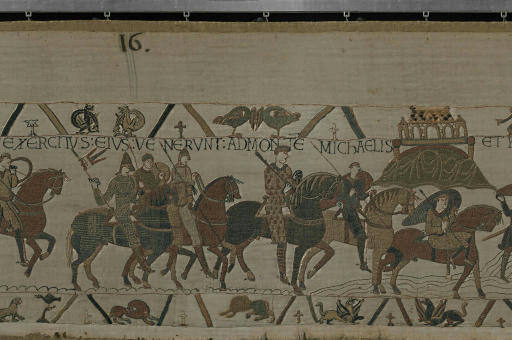 16.
EXERCITVS: EIVS: VENERVNT: AD MONTE MICHAELIS ET